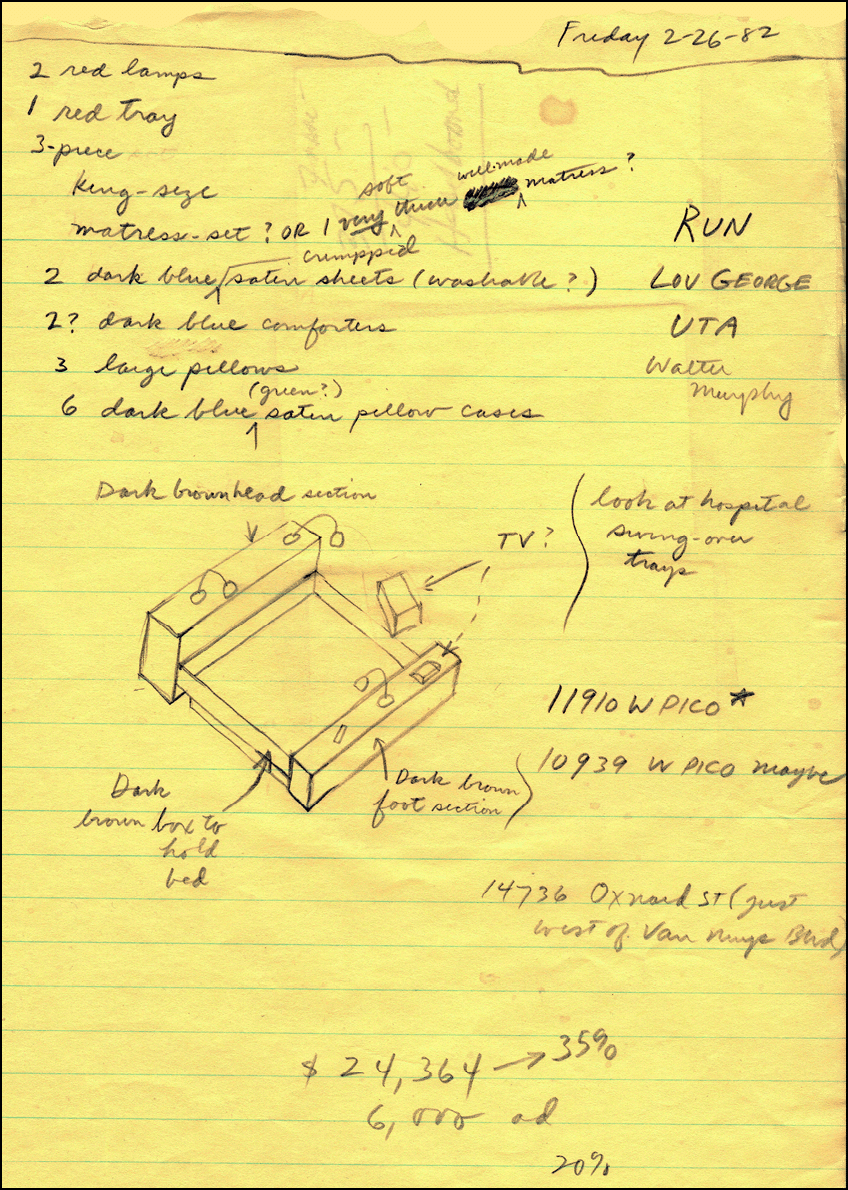 Friday 2-26-82
2 red lamps
1 red tray
3-piece
King-size
matress-set? OR 1 very soft thick well-made matress?
RUN
crimpped
2 dark blue satin sheets (washable?)
LOU GEORGE
2? dark blue comforters
UTA
3 large pillows
Walter
Murphy
(green?)
6 dark blue satin pillow cases
Dark brown head section
TV?
look at hospital
swing-over
trays
11910 W PICO*
10939 W PICO maybe
Dark brown
foot section
Dark
brown box to
hold
bed
14736 Oxnard ST (just
west of Van Nuys Blvd)
$ 24,364 → 35%
6,000 ad
20%